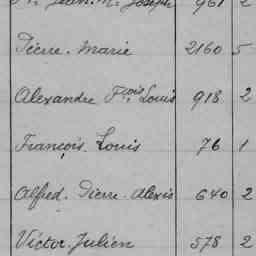 Jean. M. Joseph 961 2
Pierre. Marie 2160 5
Alexandre Fçois Louis 918 2
François. Louis 76 1
Alfred. Pierre. Alexis 640 2
Victor. Julien 578 2